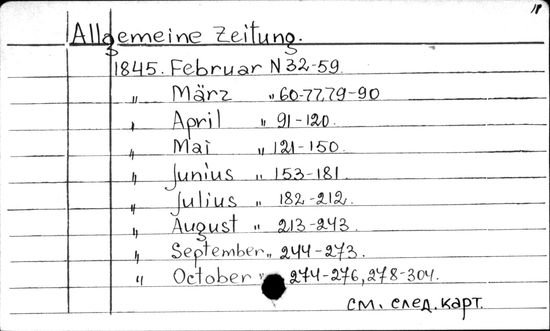 18
Allgemeine Zeitung.
1845. Februar N 32-59.
„ März „ 60-77,79-90
„ April „ 91-120.
„ Mai „ 121-150.
„ Junius „ 153-181.
„ Julius „ 182-212.
„ August „ 213-243.
„ September „ 244-273.
„ October „ 274-276, 278-304.
см. след. карт.